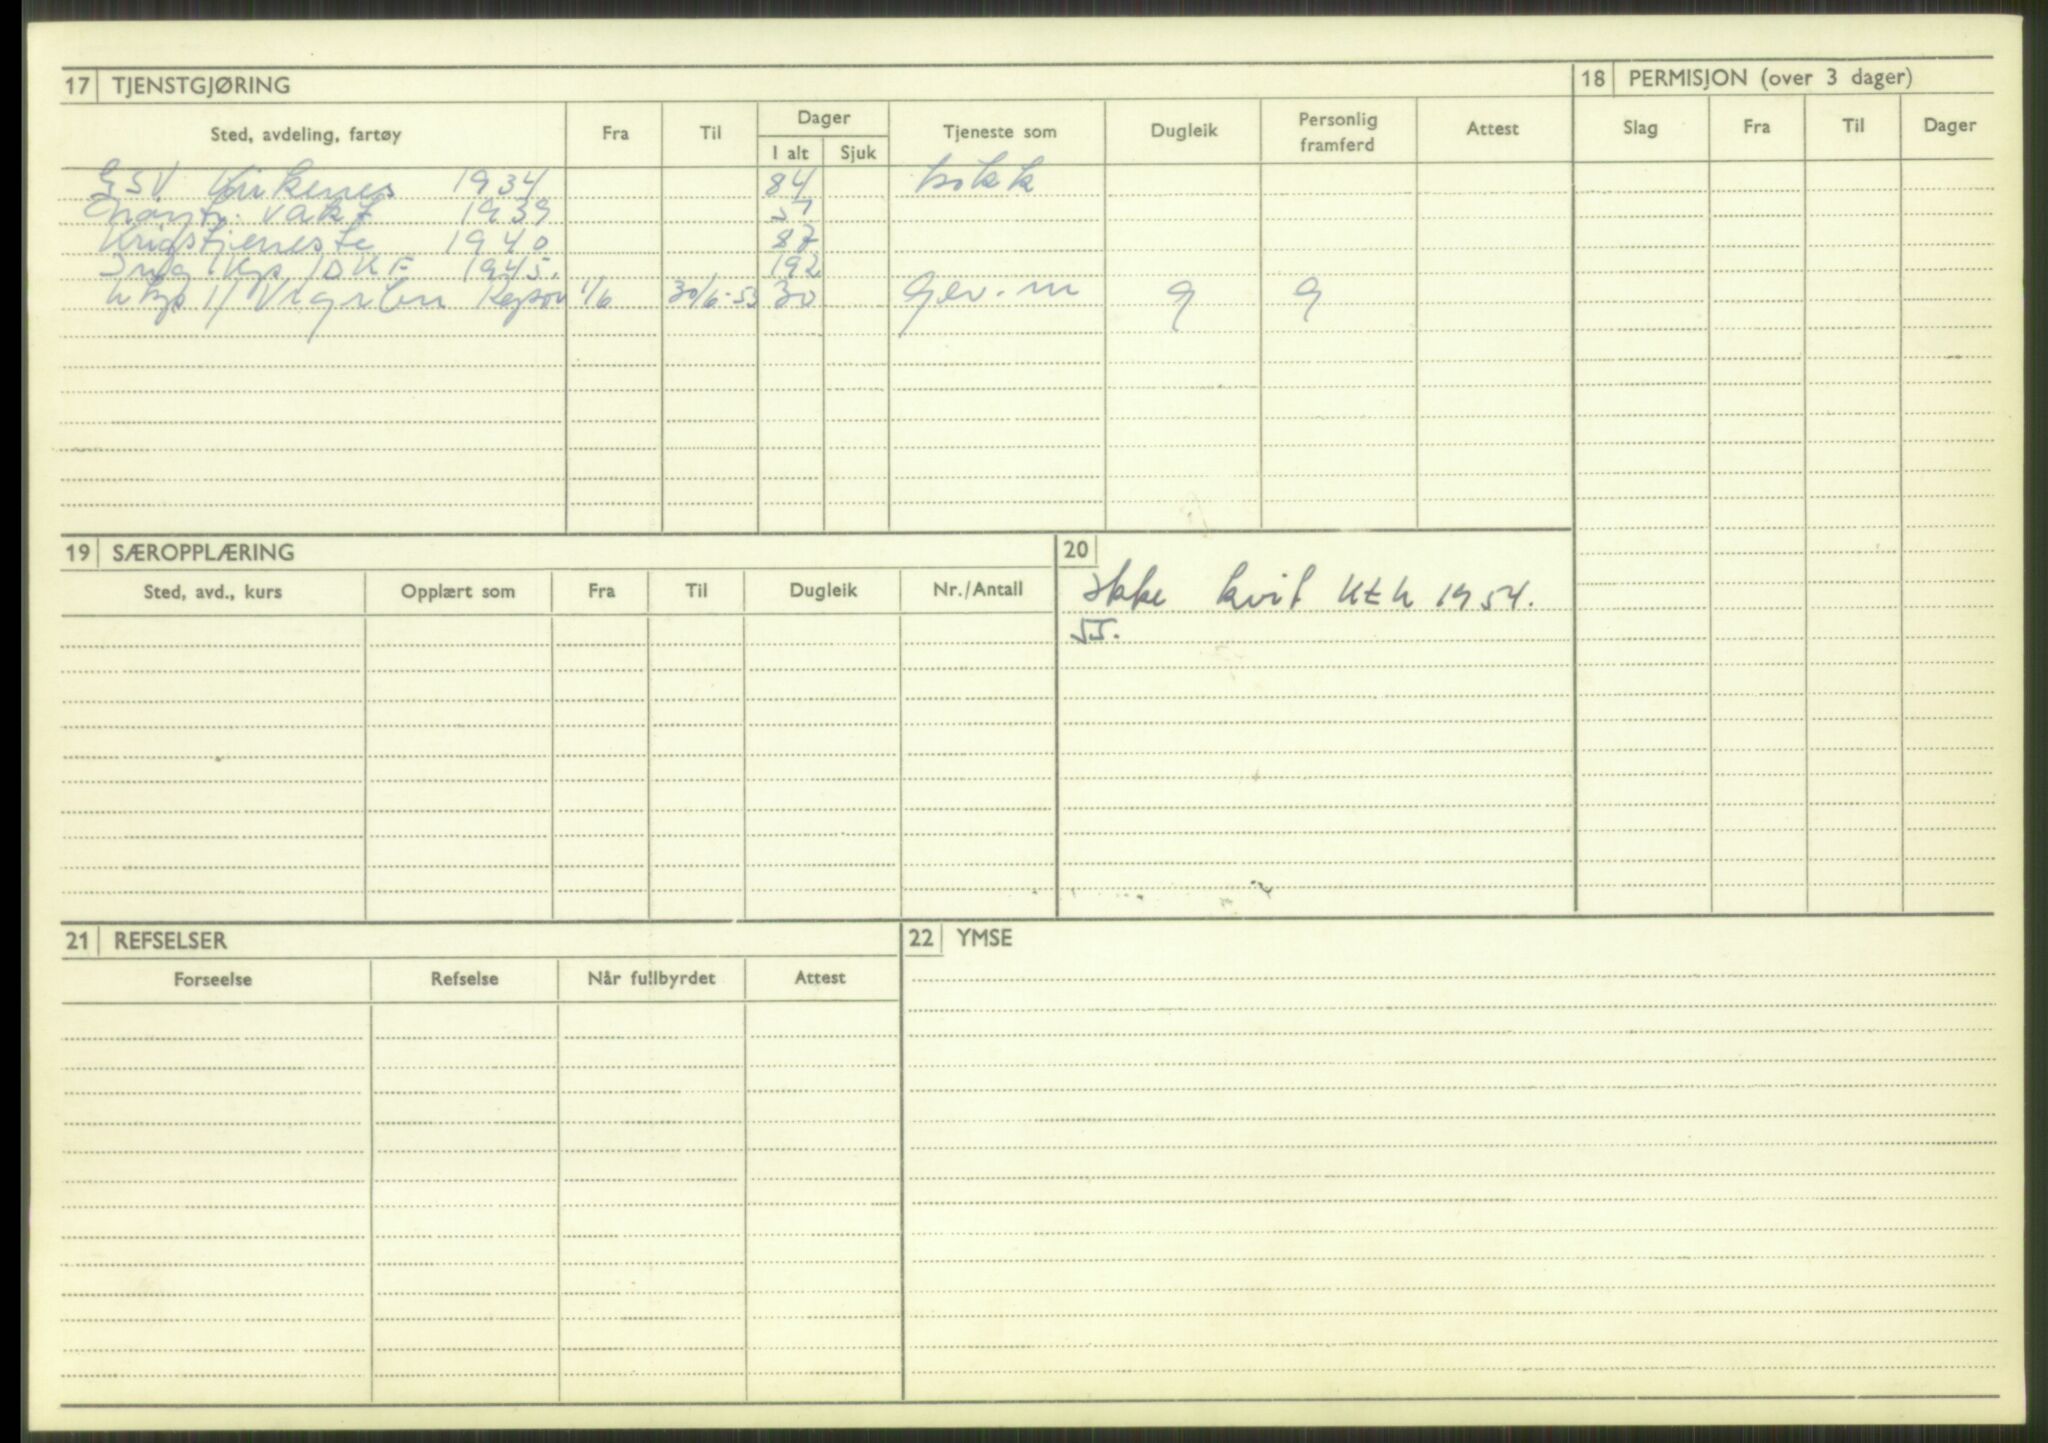 17 TJENSTGJØRING
18 PERMISJON (over 3 dager)
Sted, avdeling, fartøy Fra Til Dager Tjeneste som Dugleik Personlig framferd Attest Slag Fra Til Dager
I alt Sjuk
GSV Kirkenes 1934 84 kokk
vakt 1939
Krigstjeneste 1940 87
1945. 192
1/6 30/6-53 30 Gev. m g g
19 SÆROPPLÆRING
20
Sted, avd., kurs Opplært som Fra Til Dugleik Nr./Antall
Ikke kvit 1954.
55.
21 REFSELSER
22 YMSE
Forseelse Refselse Når fullbyrdet Attest